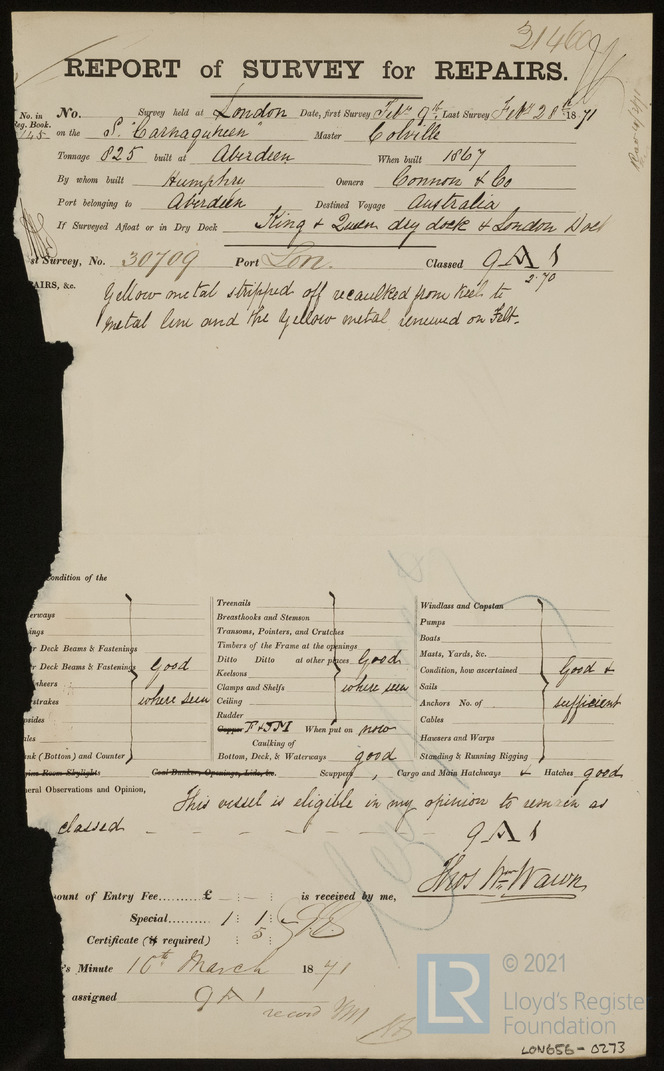 31460
REPORT of SURVEY for REPAIRS.
No. in Reg. Book. 145
No. Survey held at London Date, first Survey Feby 9th Last Survey Feby 28th 1871
on the S. "Carnaquheen" Master Colville
Tonnage 825 built at Aberdeen When built 1867
By whom built Humphrey Owners Connon & Co
Port belonging to Aberdeen Destined Voyage Australia
If Surveyed Afloat or in Dry Dock King & Queen dry dock & London Dock
st Survey, No. 30709 Port Lon. Classed 9 A 1
2.70
PAIRS, &c.
Yellow metal stripped off recaulked from keel to
metal line and the Yellow metal renewed on Felt.
Condition of the
erways
ings
r Deck Beams & Fastenings
r Deck Beams & Fastenings good
sheers
strakes where seen
psides
ales
nk (Bottom) and Counter
Treenails
Breasthooks and Stemson
Transoms, Pointers, and Crutches
Timbers of the Frame at the openings
Ditto Ditto at other places Good
Keelsons
Clamps and Shelfs where seen
Ceiling
Rudder
Copper F & YM When put on now
Caulking of
Bottom, Deck, & Waterways good
Windlass and Capstan
Pumps
Boats
Masts, Yards, &c.
Condition, how ascertained Good &
Sails
Anchors No. of sufficient
Cables
Hawsers and Warps
Standing & Running Rigging
gine Room Skylights Coal Bunker, Openings, Lids, &c. Scuppers, Cargo and Main Hatchways & Hatches good
neral Observations and Opinion,
This vessel is eligible in my opinion to remain as
classed 9 A 1
Thos Wm Wawn
ount of Entry Fee......... £ : - : is received by me,
Special......... 1 : 1 :
Certificate (if required) : 5 :
's Minute 10th March 1871
assigned 9 A 1
record YM
LR © 2021
Lloyd's Register
Foundation
LON656-0273